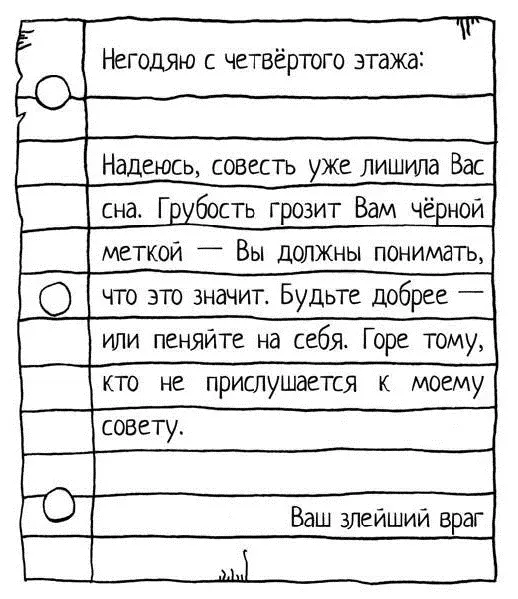 Негодяю с четвёртого этажа:
Надеюсь, совесть уже лишила Вас
сна. Грубость грозит Вам чёрной
меткой — Вы должны понимать,
что это значит. Будьте добрее —
или пеняйте на себя. Горе тому,
кто не прислушается к моему
совету.
Ваш злейший враг